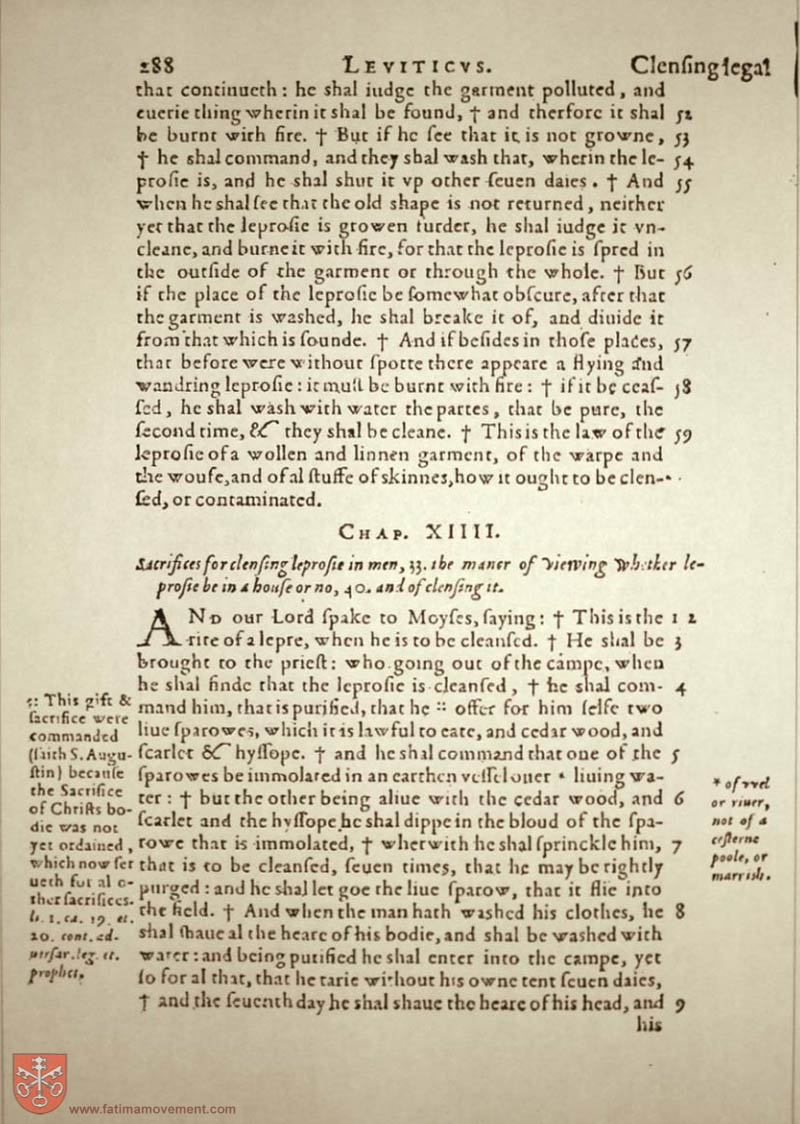 288 LEVITICVS. Clenſing legal
that continueth: he shal iudge the garment polluted, and
euerie thing wherin it shal be found, † and therfore it shal 52
be burnt with fire. † But if he ſee that it is not growne, 53
† he shal command, and they shal wash that, wherin the le- 54
proſie is, and he shal shut it vp other ſeuen daies. † And 55
when he shal ſee that the old shape is not returned, neither
yet that the leproſie is growen furder, he shal iudge it vn-
cleane, and burne it with fire, for that the leproſie is ſpred in
the outſide of the garment or through the whole. † But 56
if the place of the leproſie be ſomewhat obſcure, after that
the garment is washed, he shal breake it of, and diuide it
from that which is ſounde. † And if beſides in thoſe places, 57
that before were without ſpotte there appeare a flying and
wandring leproſie: it muſt be burnt with fire: † if it be ceaſ- 58
ſed, he shal wash with water the partes, that be pure, the
ſecond time, & they shal be cleane. † This is the law of the 59
leproſie of a wollen and linnen garment, of the warpe and
the woufe, and of al ſtuffe of skinnes, how it ought to be clen-
ſed, or contaminated.
CHAP. XIIII.
Sacrifices for clenſing leproſie in men, 33. the maner of viewing whether le-
proſie be in a houſe or no, 40. and of clenſing it.
AND our Lord ſpake to Moyſes, ſaying: † This is the 1 2
rite of a lepre, when he is to be cleanſed. † He shal be 3
brought to the prieſt: who going out of the campe, when
he shal finde that the leproſie is cleanſed, † he shal com- 4
mand him, that is purified, that he :: offer for him ſelfe two
liue ſparowes, which it is lawful to eate, and cedar wood, and
ſcarlet & hyſſope. † and he shal command that one of the 5
ſparowes be immolated in an earthen veſſel ouer * liuing wa-
ter: † but the other being aliue with the cedar wood, and 6
ſcarlet and the hyſſope he shal dippe in the bloud of the ſpa-
rowe that is immolated, † wherwith he shal ſprinckle him, 7
that is to be cleanſed, ſeuen times, that he may be rightly
purged: and he shal let goe the liue ſparow, that it flie into
the field. † And when the man hath washed his clothes, he 8
shal shaue al the heare of his bodie, and shal be washed with
water: and being purified he shal enter into the campe, yet
ſo for al that, that he tarie without his owne tent ſeuen daies,
† and the ſeuenth day he shal shaue the heare of his head, and 9
his
:: This gift &
ſacrifice were
commanded
(ſaith S. Augu-
ſtin) becauſe
the Sacrifice
of Chriſts bo-
die was not
yet ordained,
which now ſer
ueth for al o-
ther ſacrifices.
li. 1. ca. 19. et.
20. cont. ad-
uerſar. leg. et.
prophet.
* of wel
or riuer,
not of a
ceſterne
poole, or
marrish.
www.fatimamovement.com